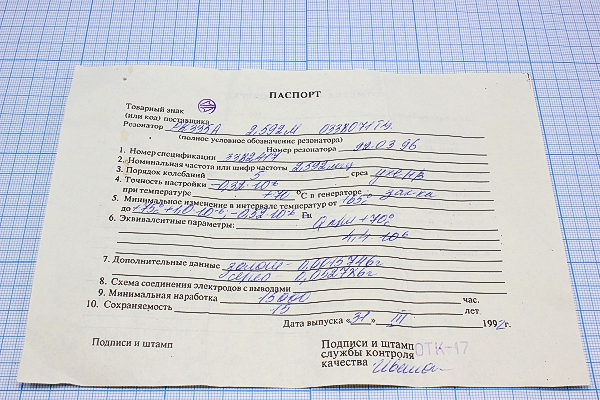 ПАСПОРТ
Товарный знак
(или код) поставщика
Резонатор РК335А 2,592м 0338071ТУ
(полное условное обозначение резонатора)
Номер резонатора 96
1. Номер спецификации
2. Номинальная частота или шифр частоты 2,592мгц
3. Порядок колебаний 3 срез
4. Точность настройки -0,31·10⁻⁶
при температуре +70 °С в генераторе
5. Минимальное изменение в интервале температур от 65°
до +75° +1,0·10⁻⁶; -0,32·10⁻⁶ Гц
6. Эквивалентные параметры: Q при +70°
4,4·10⁶
7. Дополнительные данные золото - 0,001574кг
серебро 0,00278кг
8. Схема соединения электродов с выводами
9. Минимальная наработка 15000 час.
10. Сохраняемость 15 лет
Дата выпуска «31» III 1992г.
Подписи и штамп
Подписи и штамп
службы контроля ОТК-17
качества